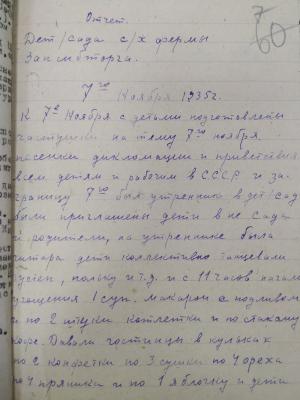 7
60
Отчет.
Дет/сада с/х фермы
Заксибторга.
7го Ноября 1935г.
К 7е Ноября с детьми подготовлены
частушки на тему 7го ноября
песенки дикломации и приветствия
всем детям и рабочим в СССР и за-
границу 7го был утренник в дет/сад
были приглашены дети в не сада
и родители, на утреннике была
гитара дети коллективно танцевали
польку и т.д. и с 11 часов начали
угощения 1 суп. макарон с подливом
и по 2 штуки котлетки и по стакану
кофе. Давали гостинцы в кульках
по 2 конфетки по 3 сушки по 4 ореха
по 4 пряника и по 1 яблочку и дети